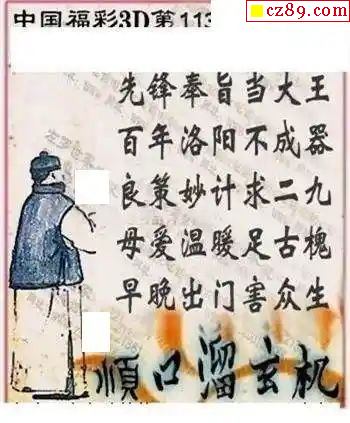 cz89.com
中国福彩3D第113
先锋奉旨当大王
百年洛阳不成器
良策妙计求二九
母爱温暖足古槐
早晚出门害众生
顺口溜玄机